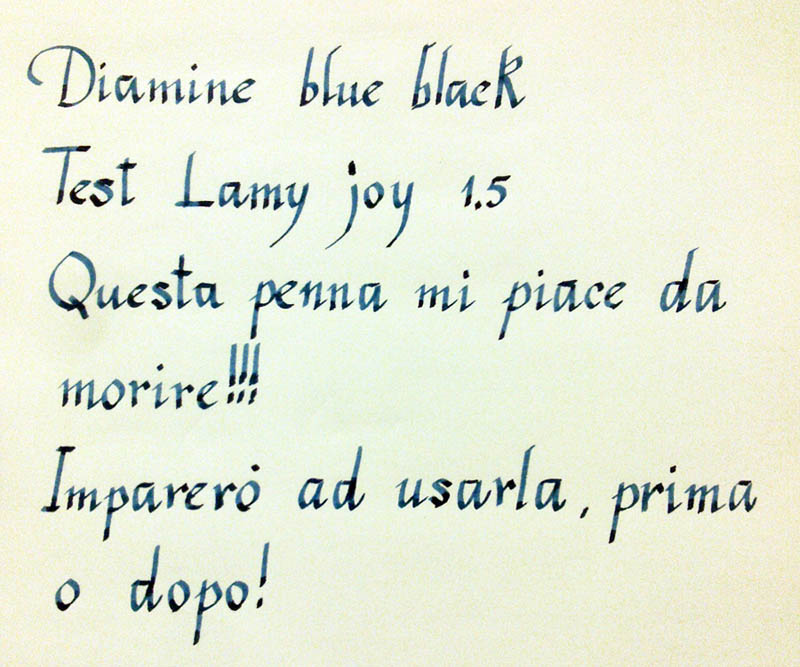 Diamine blue black
Test Lamy joy 1.5
Questa penna mi piace da
morire!!!
Impareró ad usarla, prima
o dopo!